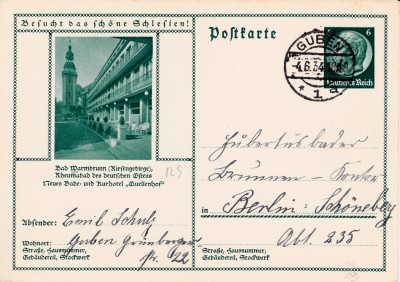 Besucht das schöne Schlesien!
Bad Warmbrunn (Riesengebirge),
Rheumabad des deutschen Ostens
Neues Bade- und Kurhotel „Quellenhof“
Absender: Emil Schulz
Wohnort: Guben Grünberger
Straße, Hausnummer,
Gebäudeteil, Stockwerk
Nr. 22
Postkarte
GUBEN
4.6.34
* 1
6
Deutsches Reich
Hubertusbader
Brunnen - Kontor
in Berlin-Schöneberg
Abt. 235
Straße, Hausnummer,
Gebäudeteil, Stockwerk